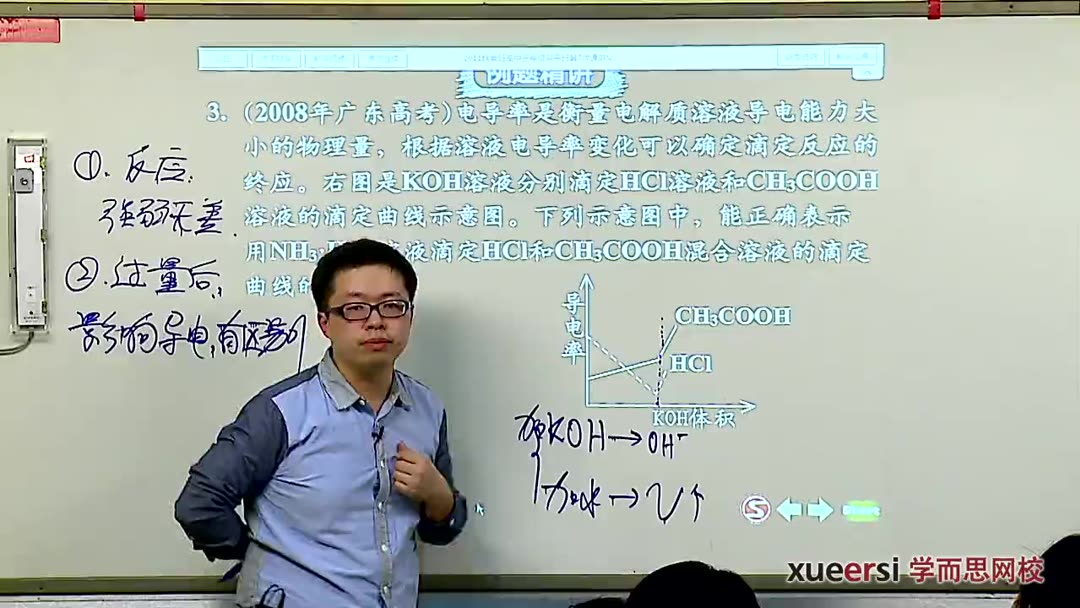 例题精讲
3. (2008年广东高考)电导率是衡量电解质溶液导电能力大
小的物理量，根据溶液电导率变化可以确定滴定反应的
终应。右图是KOH溶液分别滴定HCl溶液和CH₃COOH
溶液的滴定曲线示意图。下列示意图中，能正确表示
用NH₃·溶液滴定HCl和CH₃COOH混合溶液的滴定
曲线的
导电率
CH₃COOH
HCl
KOH体积
①.反应.
强弱
②.过量后,
影响导电,有
加KOH→OH⁻
加水→V↑
xueersi 学而思网校